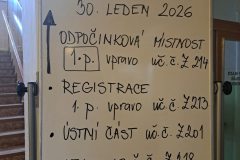 30. LEDEN 2026
ODPOČINKOVÁ MÍSTNOST
1.p. vpravo uč.č. Z214
• REGISTRACE
1.p. vpravo uč.č. Z213
• ÚSTNÍ ČÁST uč.č. Z201